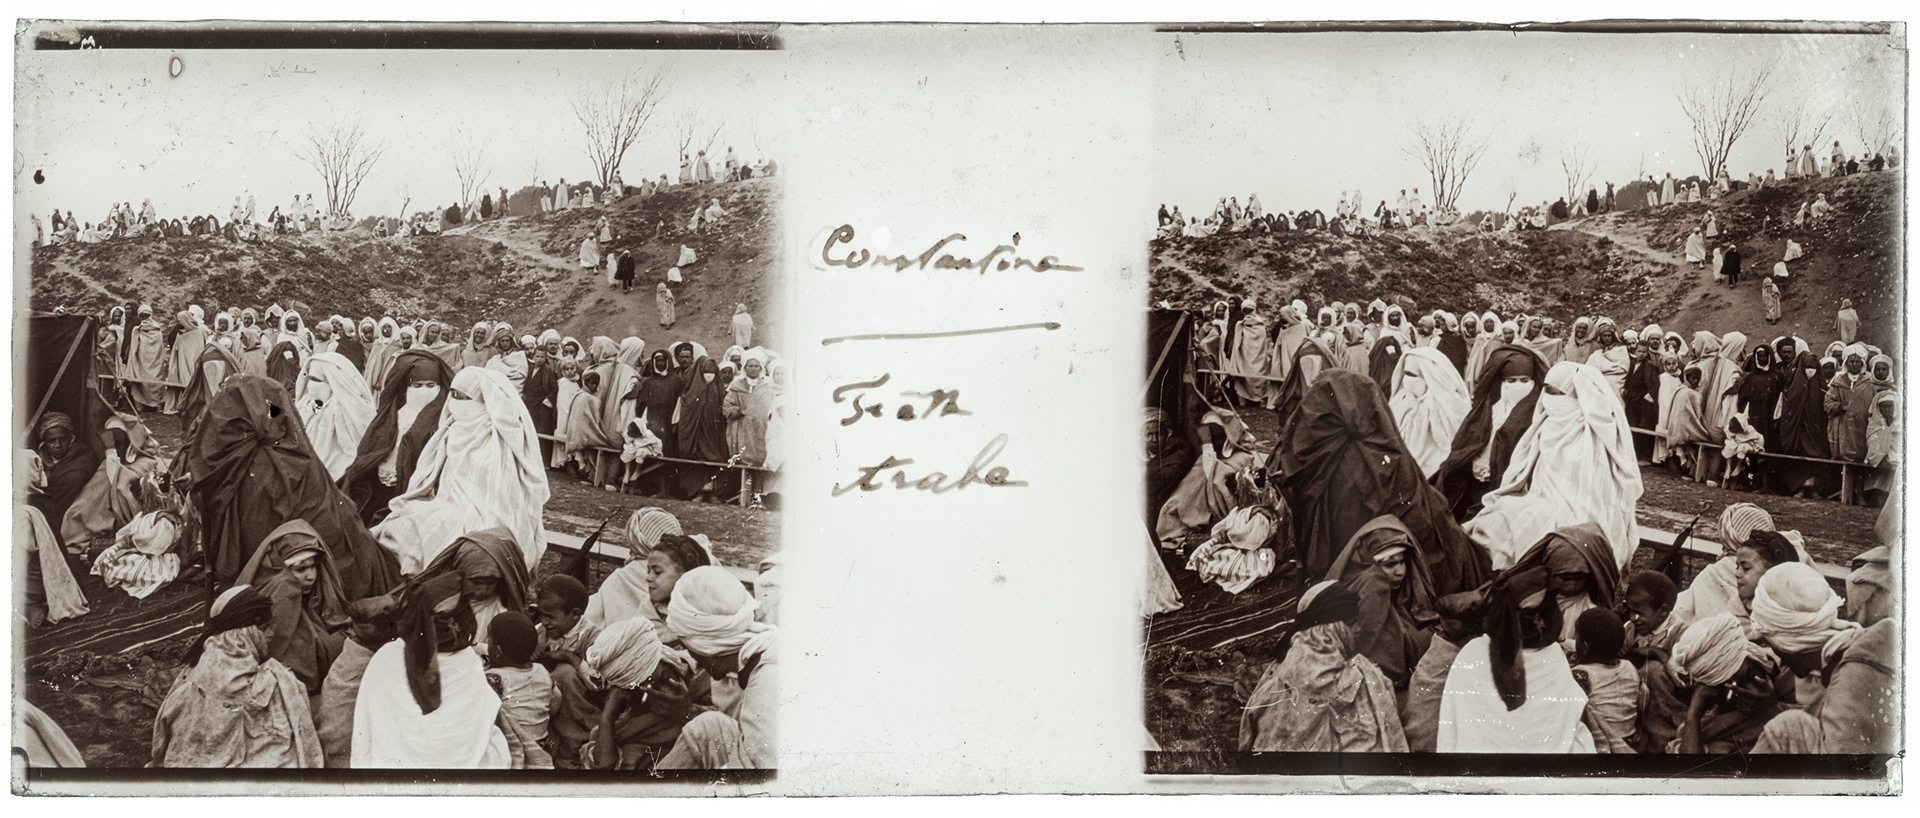 Constantine
Arabe